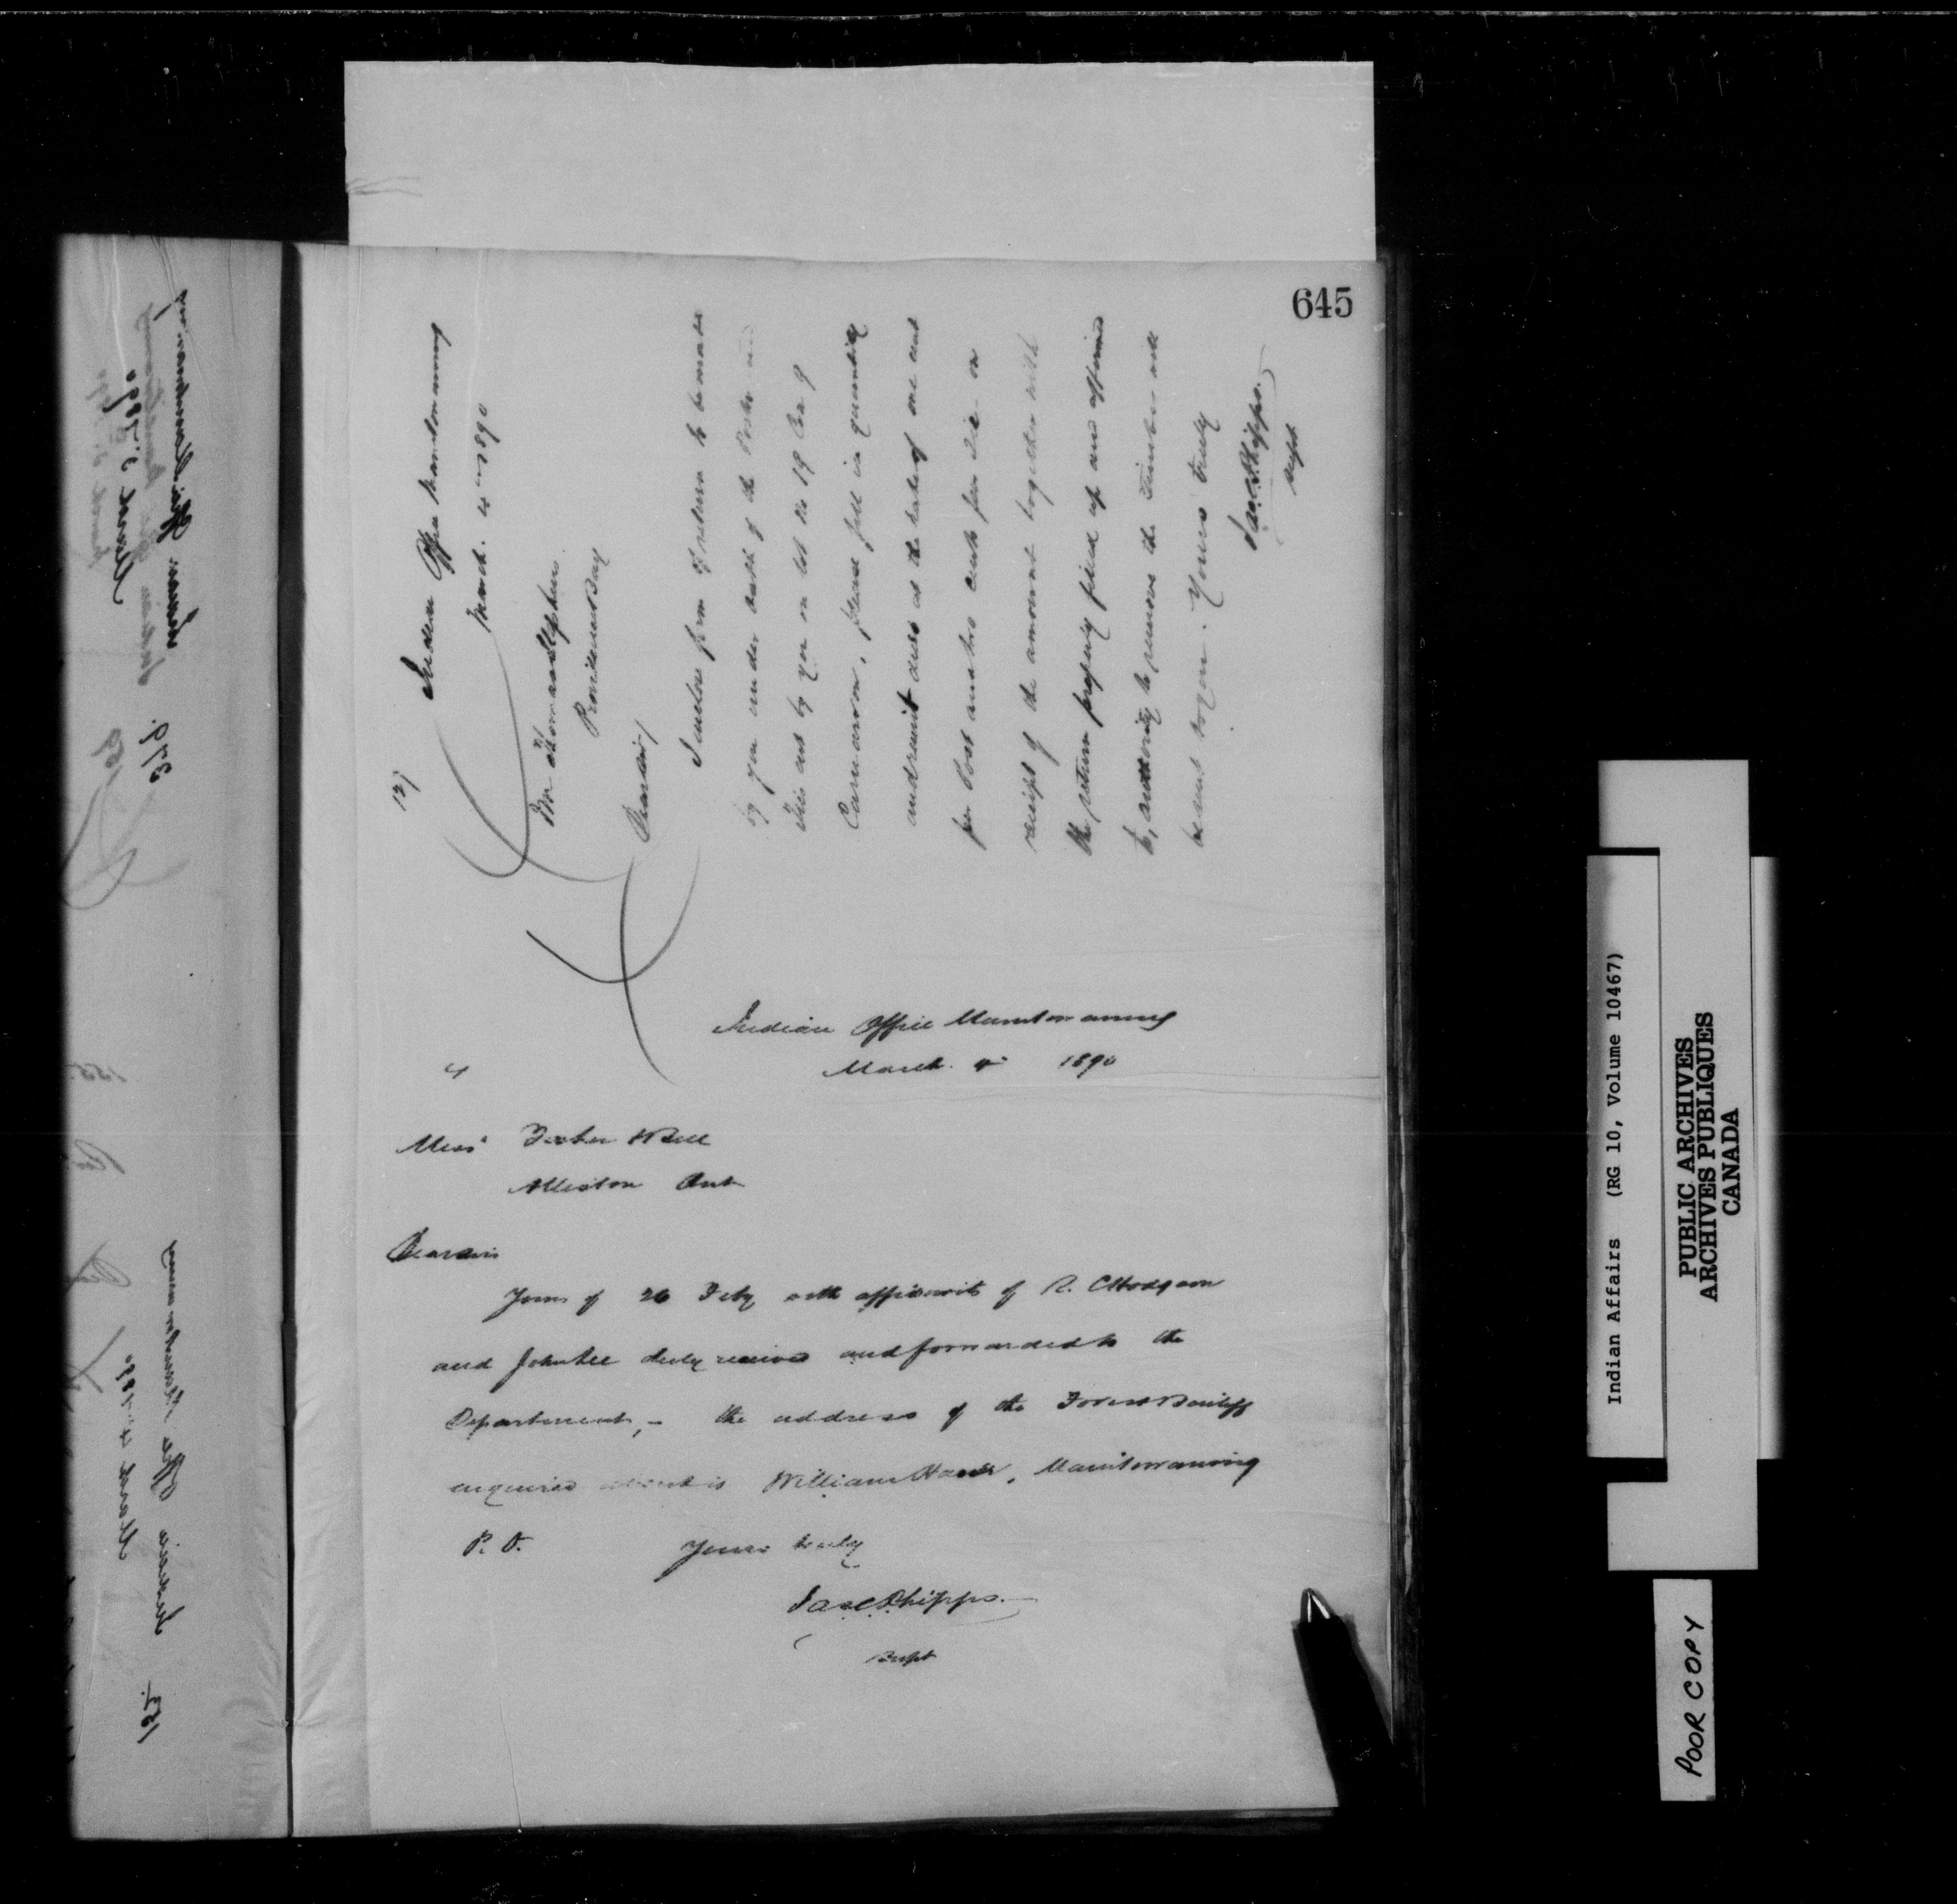 645
127
Indian Office Manitowaning
March 4th 1890
Mr Thomas Stephens
Providence Bay
Dear Sir/
I enclose form of return to be made
by you under oath of the Posts and
Ties cut by you on lot No 19 Con 9
Carnarvon, please fill in quantity
and remit dues at the rate of one cent
per Post and two cents per Tie - on
receipt of the amount together with
the return properly filled up and affirmed
to, authority to remove the Timber will
be sent to you. Yours truly
Jas. C. Phipps.
Supt
Indian Office Manitowaning
March 4th 1890
4
Mess
Alliston Ont
Dear Sirs
Yours of 26 Feby with affidavits of R. C Hodgson
and John Lee duly received and forwarded to the
Department, - the address of the Forest Bailiff
enquired about is William Manitowaning
P. O. Yours truly
Jas C. Phipps.
Supt
Indian Office Manitowaning
March 5th 1890
379.
Indian Office Manitowaning
March 4th 1890
155.
Indian Affairs (RG 10, Volume 10467)
PUBLIC ARCHIVES
ARCHIVES PUBLIQUES
CANADA
POOR COPY